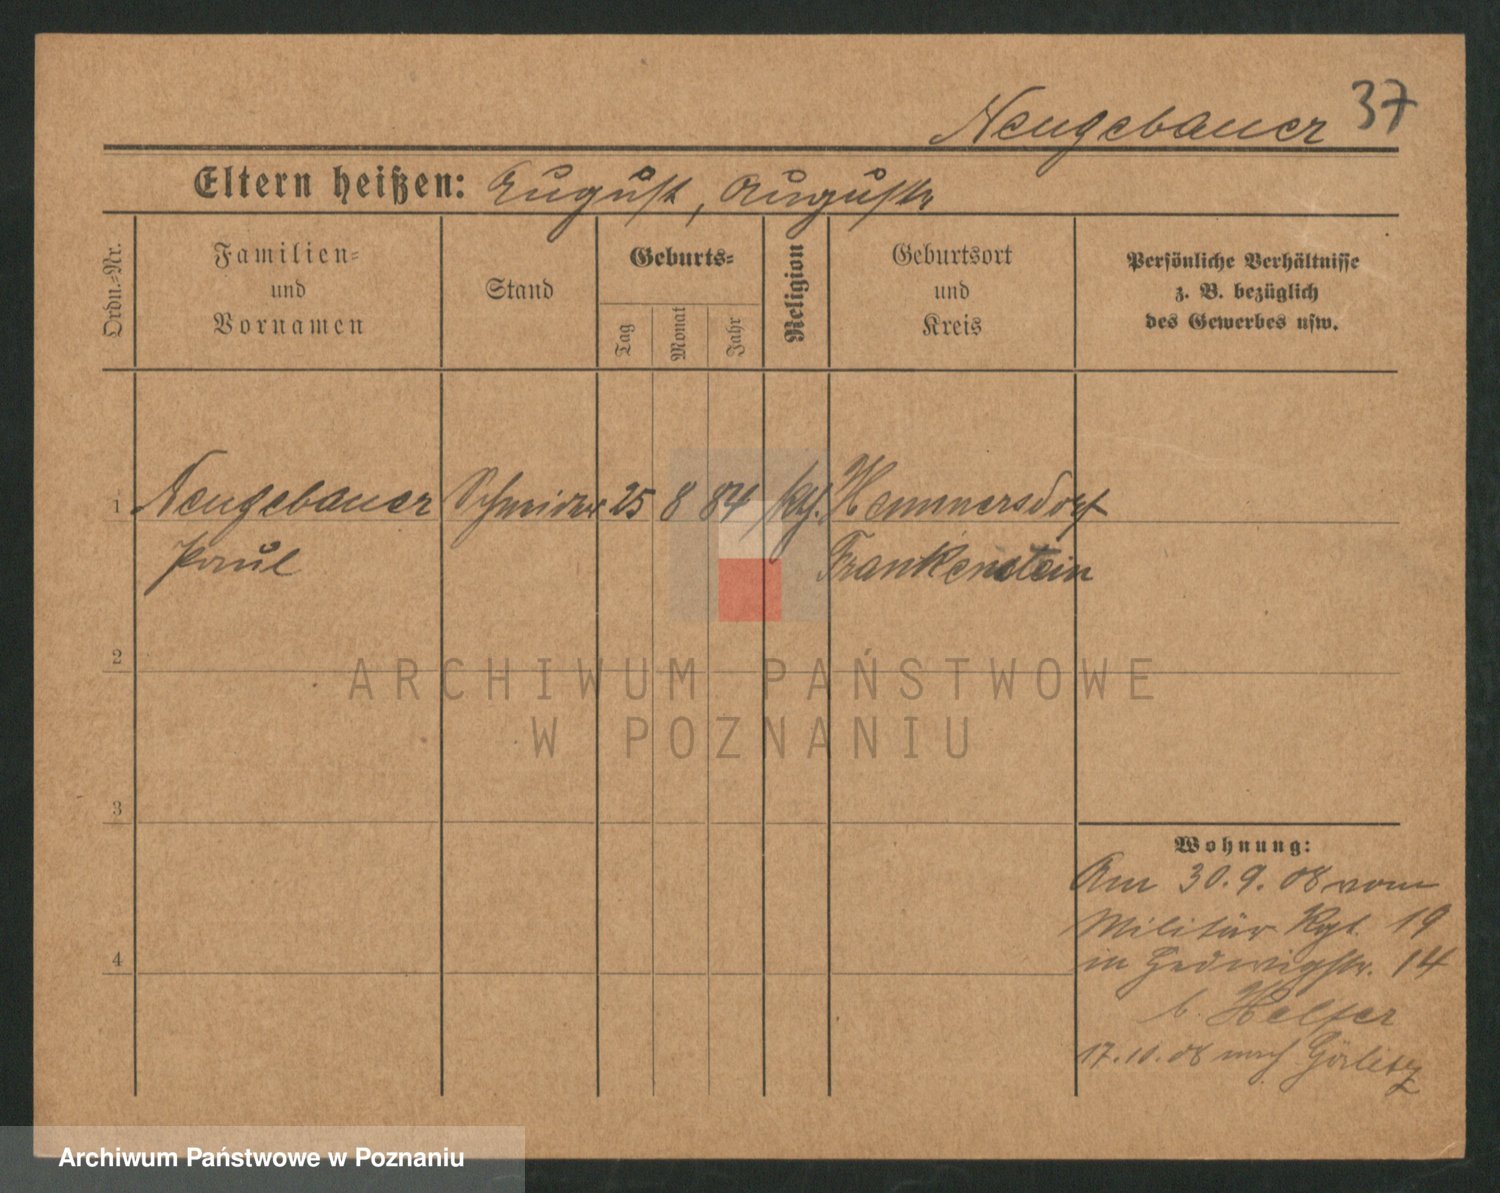 37
Neugebauer
Eltern heißen: August, Auguste
Ordn.-Nr.
Familien-
und
Vornamen
Stand
Geburts-
Tag
Monat
Jahr
Religion
Geburtsort
und
Kreis
Persönliche Verhältnisse
z. B. bezüglich
des Gewerbes usw.
1 Neugebauer Schneider 25 8 84 kth. Hemmersdorf
Paul Frankenstein
2
3
4
Wohnung:
Am 30.9.08 vom
Militär Rgt. 19
in Hedwigstr. 14
b. Helfer
17.10.08 nach Görlitz
ARCHIWUM PAŃSTWOWE
W POZNANIU
Archiwum Państwowe w Poznaniu